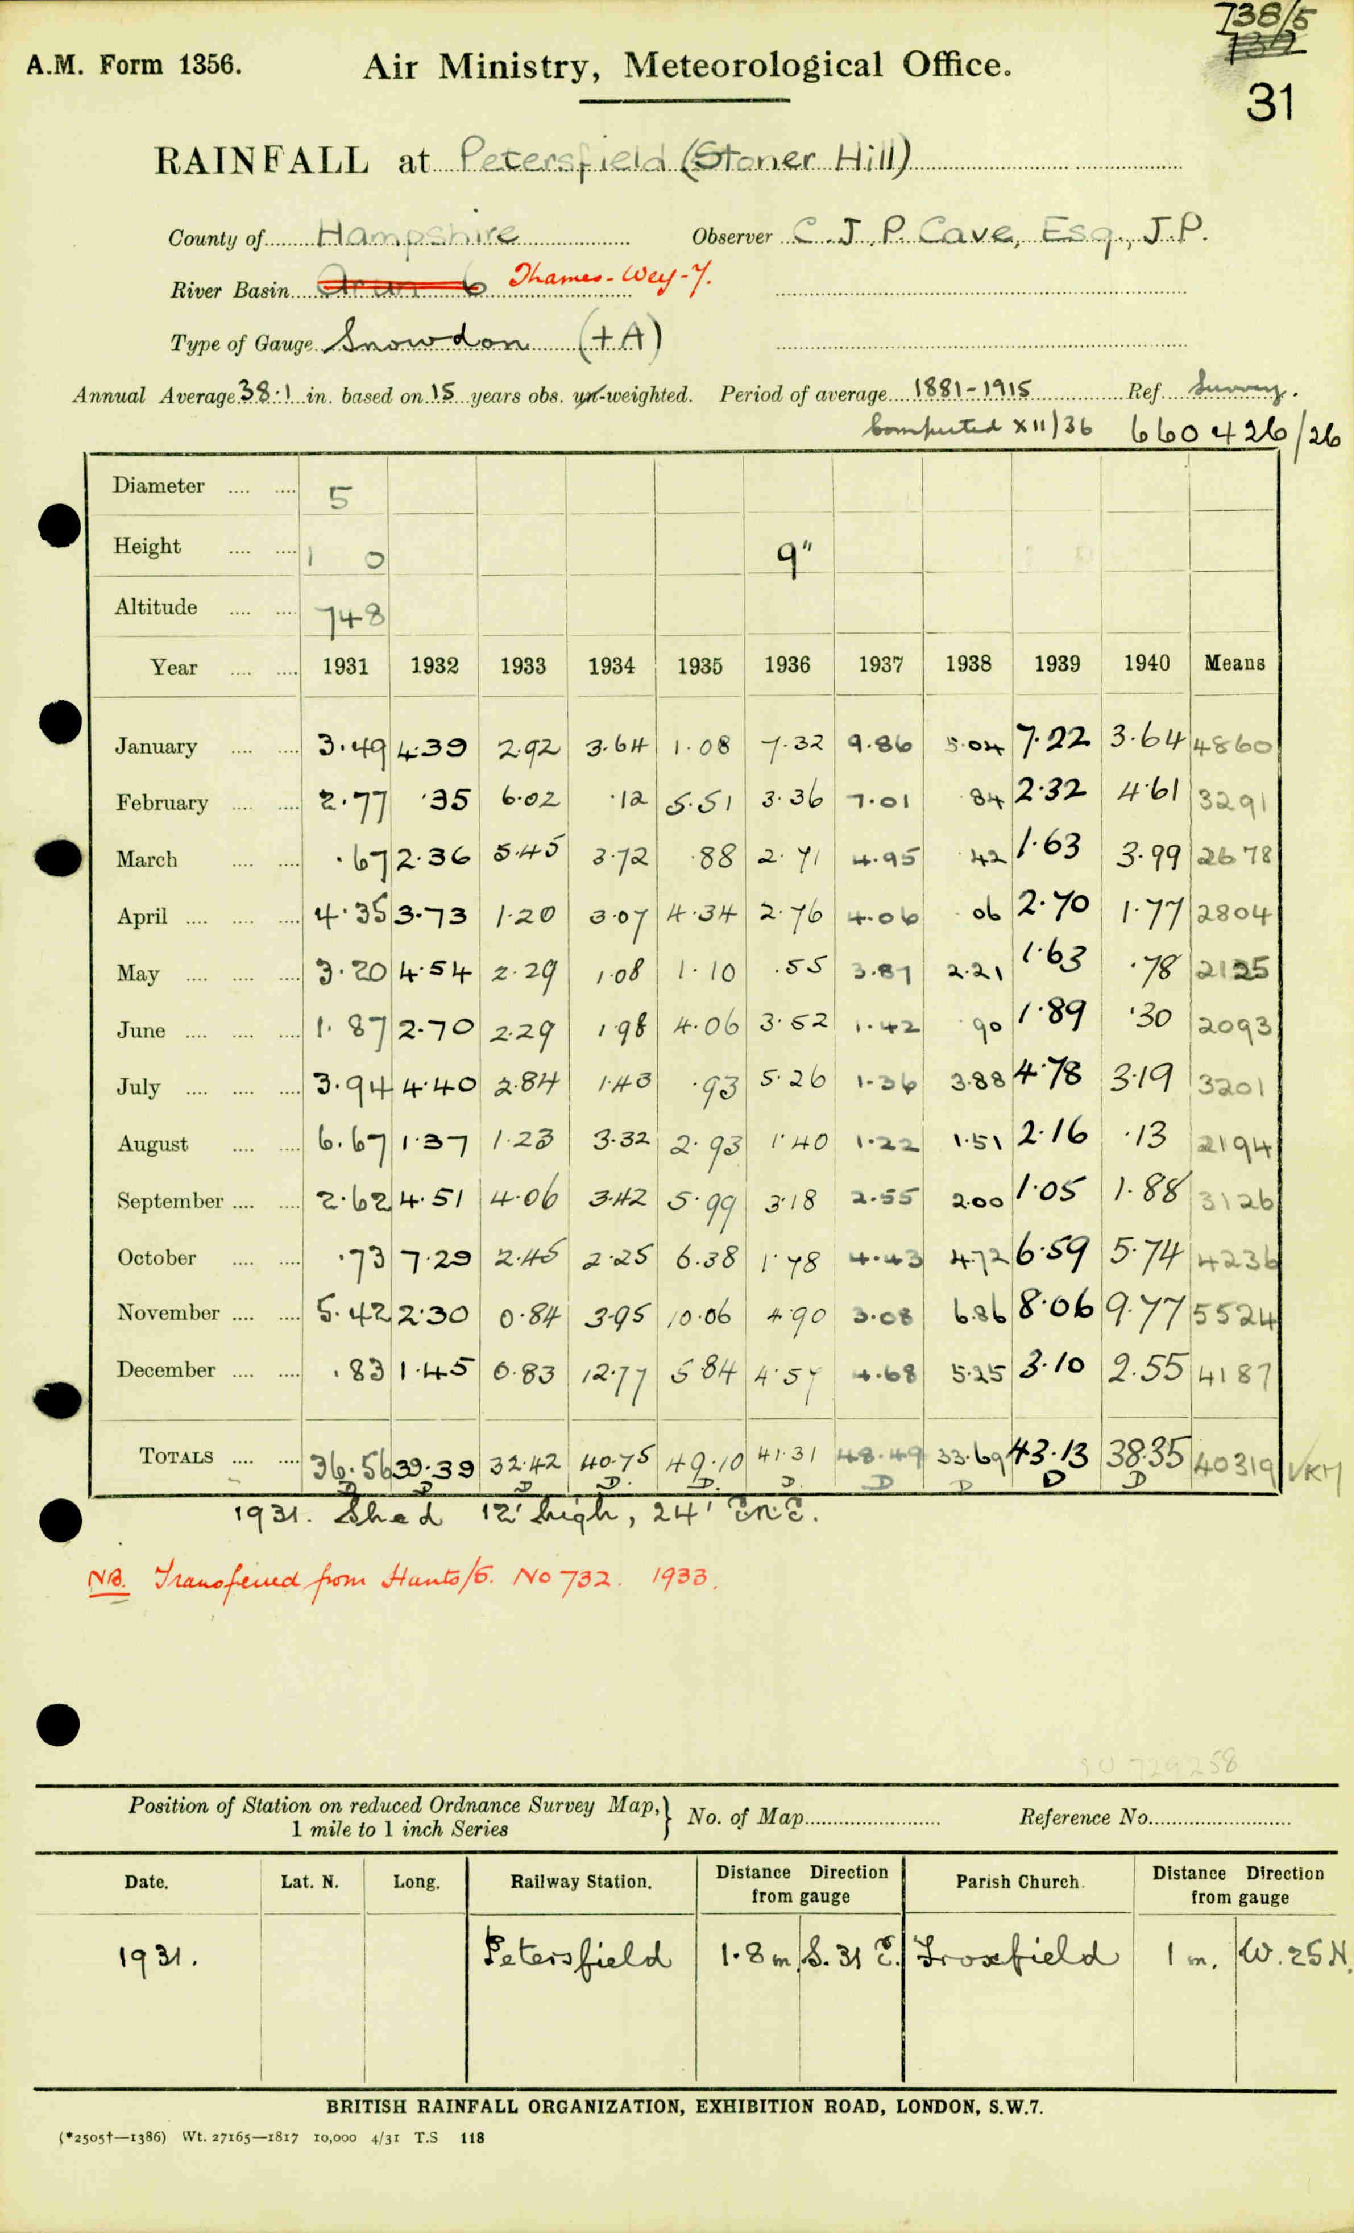 738/5
732
31
A.M. Form 1356. Air Ministry, Meteorological Office.
RAINFALL at Petersfield (Stoner Hill)
County of Hampshire Observer C. J. P. Cave, Esq., J.P.
River Basin Arun 6 Thames-Wey-7.
Type of Gauge Snowdon (+A)
Annual Average 38.1 in. based on 15 years obs. un-weighted. Period of average 1881-1915 Ref. Survey.
Computed XII/36 660426/26
Diameter .... .... 5
Height .... .... 1 0 9"
Altitude .... .... 748
Year .... .... 1931 1932 1933 1934 1935 1936 1937 1938 1939 1940 Means
January .... .... 3.49 4.39 2.92 3.64 1.08 7.32 9.86 5.04 7.22 3.64 4860
February .... .... 2.77 .35 6.02 .12 5.51 3.36 7.01 .84 2.32 4.61 3291
March .... .... .67 2.36 5.45 3.72 .88 2.71 4.95 .42 1.63 3.99 2678
April .... .... .... 4.35 3.73 1.20 3.07 4.34 2.76 4.06 .06 2.70 1.77 2804
May .... .... .... 3.20 4.54 2.29 1.08 1.10 .55 3.87 2.21 1.63 .78 2125
June .... .... .... 1.87 2.70 2.29 1.98 4.06 3.52 1.42 .90 1.89 .30 2093
July .... .... .... 3.94 4.40 2.84 1.43 .93 5.26 1.36 3.88 4.78 3.19 3201
August .... .... 6.67 1.37 1.23 3.32 2.93 1.40 1.22 1.51 2.16 .13 2194
September .... .... 2.62 4.51 4.06 3.42 5.99 3.18 2.55 2.00 1.05 1.88 3126
October .... .... .73 7.29 2.45 2.25 6.38 1.78 4.43 4.72 6.59 5.74 4236
November .... .... 5.42 2.30 0.84 3.95 10.06 4.90 3.08 6.86 8.06 9.77 5524
December .... .... .83 1.45 0.83 12.77 5.84 4.57 4.68 5.25 3.10 2.55 4187
TOTALS .... .... 36.56 39.39 32.42 40.75 49.10 41.31 48.49 33.69 43.13 38.35 40319 VKM
D D D D. D. D. D D D D
1931. Shed 12' high, 24' E.N.E.
NB. Transferred from Hants/5. No 732. 1933.
SU 729258
Position of Station on reduced Ordnance Survey Map, 1 mile to 1 inch Series } No. of Map Reference No.
Date. Lat. N. Long. Railway Station. Distance Direction from gauge Parish Church. Distance Direction from gauge
1931. Petersfield 1.8 m. S. 31 E. Froxfield 1 m. W. 25 N.
BRITISH RAINFALL ORGANIZATION, EXHIBITION ROAD, LONDON, S.W.7.
(*2505†—1386) Wt. 27165—1817 10,000 4/31 T.S 118